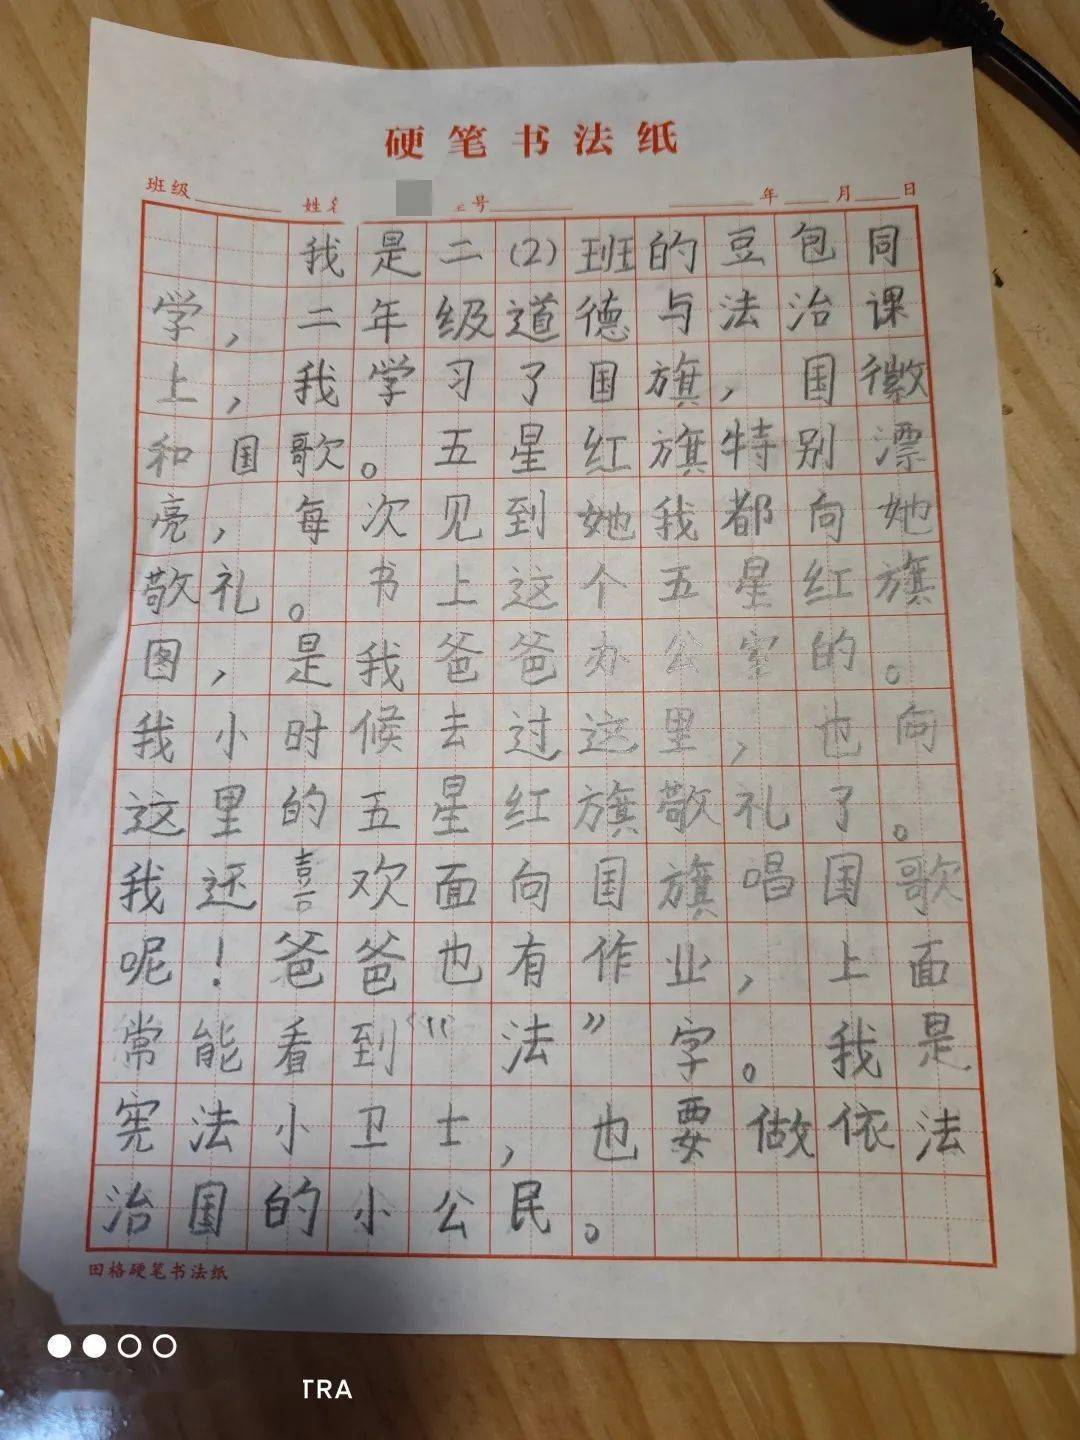 硬笔书法纸
班级 姓名 号 年 月 日
我是二(2)班的豆包同
学，二年级道德与法治课
上，我学习了国旗，国徽
和国歌。五星红旗特别漂
亮，每次见到她我都向她
敬礼。书上这个五星红旗
图，是我爸爸办公室的。
我小时候去过这里，也向
这里的五星红旗敬礼了。
我还喜欢面向国旗唱国歌
呢！爸爸也有作业，上面
常能看到“法”字。我是
宪法小卫士，也要做依法
治国的小公民。
田格硬笔书法纸
TRA